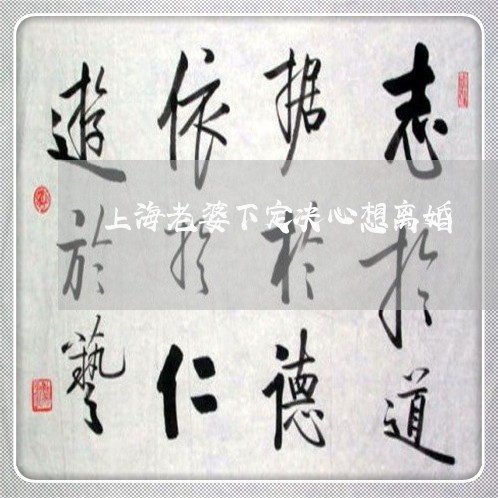 志於道
据於德
依於仁
遊於藝
上海老婆下定决心想离婚